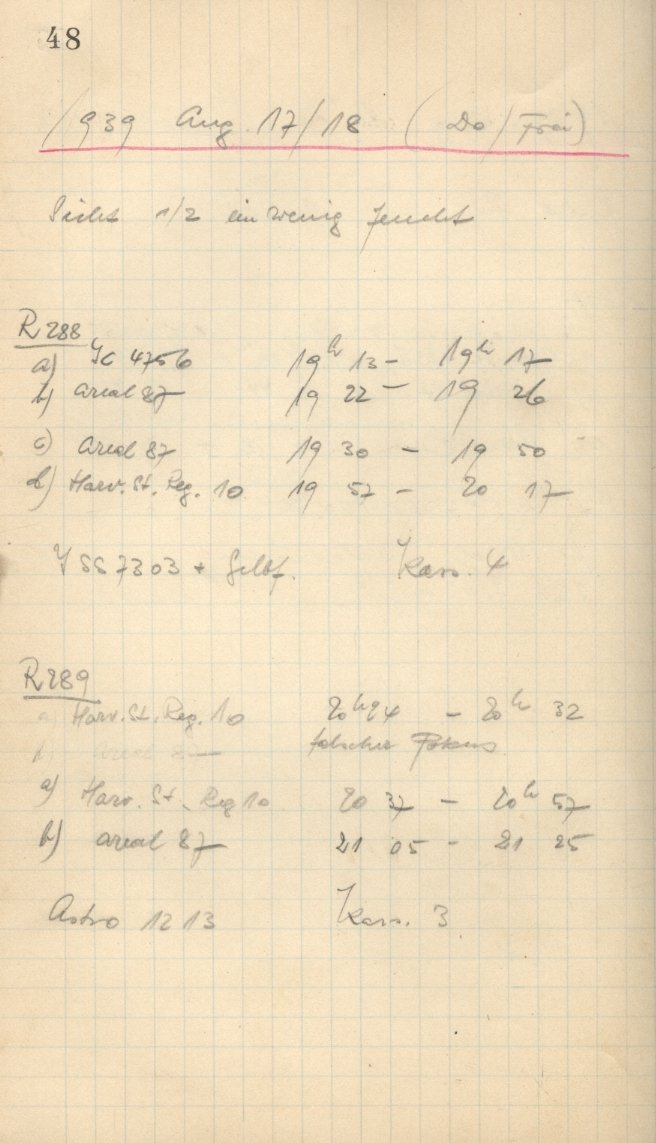 48
1939 Aug. 17/18 (Do/Frei)
Sicht 1/2 ein wenig feucht
R 288
a) JC 4756 19h 13 – 19h 17
b) Areal 87 19 22 – 19 26
c) Areal 87 19 30 – 19 50
d) Harv. St. Reg. 10 19 57 – 20 17
JSS 7303 + Gelbf. Kass. 4
R 289
a) Harv. St. Reg. 10 20h 24 – 20h 32
b) Areal falscher Fokus
a) Harv. St. Reg 10 20 37 – 20h 57
b) Areal 87 21 05 – 21 25
Astro 1213 Kass. 3